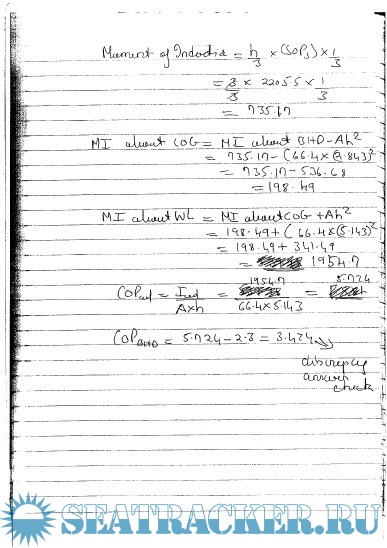 Moment of Indodia = h/3 × (SOP3) × 1/3
= 3/3 × 2205.5 × 1/3
= 735.17
MI about COG = MI about BHD - Ah²
= 735.17 - (66.4 × (2.843)²
= 735.17 - 536.68
= 198.49
MI about WL = MI about COG + Ah²
= 198.49 + (66.4 × (5.143)²
= 198.49 + 341.49
= 1954.7
COP wl = Iwl / A×h = 1954.7 / 66.4 × 5.143 = 5.724
COP BHD = 5.724 - 2.3 = 3.424
answer
check
SEATRACKER.RU